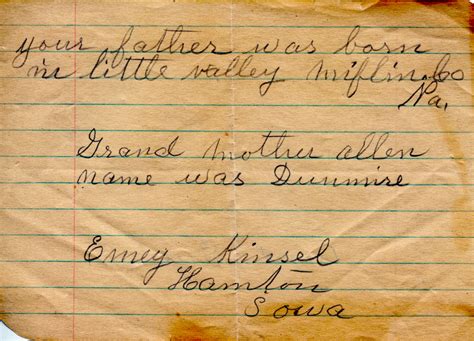 your father was born
in little valley Miflin. Co
Pa.
Grand mother allen
name was Dunmire
Emey Kinsel
Hamton
Iowa